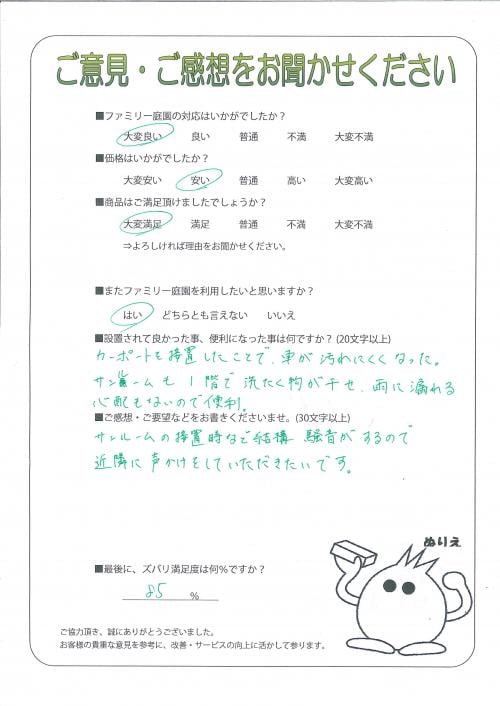 ご意見・ご感想をお聞かせください
■ファミリー庭園の対応はいかがでしたか？
大変良い 良い 普通 不満 大変不満
■価格はいかがでしたか？
大変安い 安い 普通 高い 大変高い
■商品はご満足頂けましたでしょうか？
大変満足 満足 普通 不満 大変不満
⇒よろしければ理由をお聞かせください。
■またファミリー庭園を利用したいと思いますか？
はい どちらとも言えない いいえ
■設置されて良かった事、便利になった事は何ですか？(20文字以上)
カーポートを設置したことで、車が汚れにくくなった。
サンルームも1階で洗たく物が干せ、雨に濡れる
心配もないので便利。
■ご感想・ご要望などをお書きくださいませ。(30文字以上)
サンルームの設置時など結構騒音がするので
近隣に声かけをしていただきたいです。
ぬりえ
■最後に、ズバリ満足度は何％ですか？
85 ％
ご協力頂き、誠にありがとうございました。
お客様の貴重な意見を参考に、改善・サービスの向上に活かして参ります。